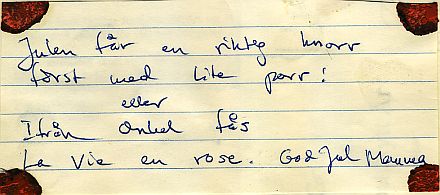 Julen får en riktig knorr
först med lite porr!
eller
Ifrån Onkel fås
La Vie en rose. God Jul Mamma